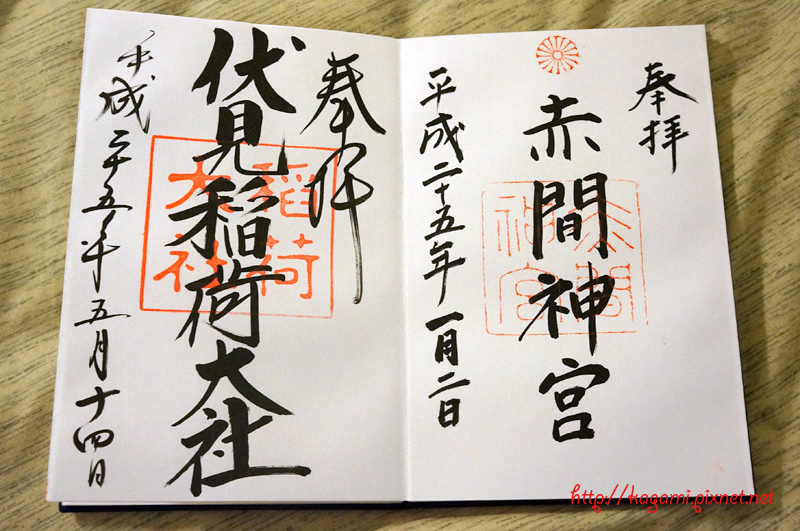 奉拝
赤間神宮
赤間
神宮
平成二十五年一月二日
奉拝
伏見稲荷大社
稲荷
大社
平成二十五年五月十四日
http://kagami.pixnet.net